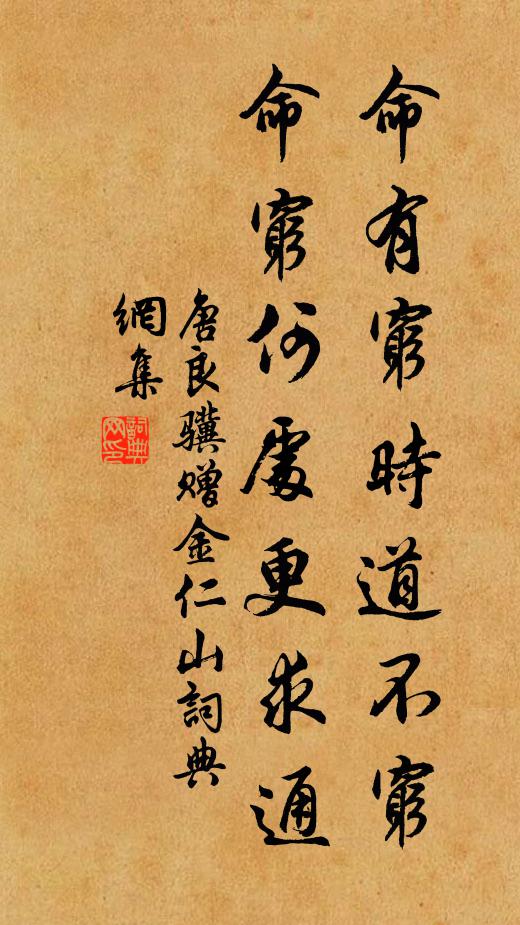 命有窮時道不窮
命窮何處更求通
唐良驥贈金仁山詞典
網集
詞典
网印